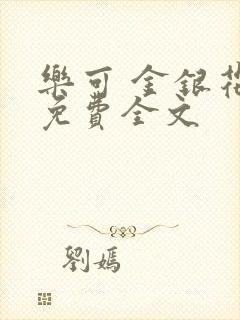 樂可 金銀花
免費全文
劉媽